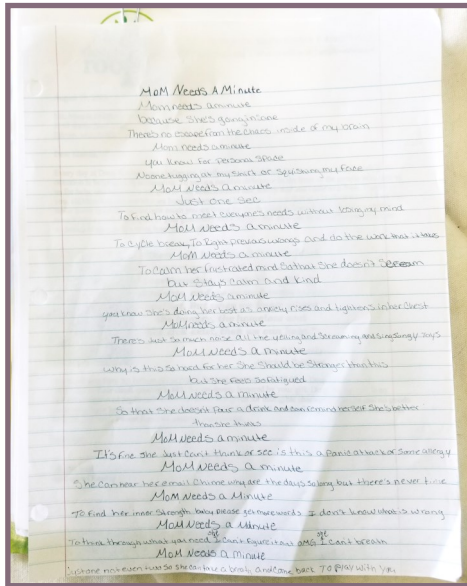 MOM NEEDS A MINUTE
Mom needs a minute
because she's going in one
There's no escape from the chaos inside of my brain
Mom needs a minute
you know for personal space
No one tugging at my shirt or squishing my face
MOM Needs a minute
Just one sec
To find how to meet everyones needs without losing my mind
MOM Needs a minute
To cycle break, To Right previous wrongs and do the work that it takes
MOM Needs a minute
To calm her frustrated mind so that she doesn't scream
but stays calm and kind
MOM Needs a minute
you know she's doing her best as anxiety rises and tightens in her chest
MOM needs a minute
There's Just so much noise all the yelling and screaming and sing songy
MOM Needs a minute
Why is this so hard for her She should be stronger than this
but she feels so fatigued
MOM Needs a minute
So that she doesn't Pour a drink and can remind herself she's better
than she thinks
MOM Needs a minute
It's fine she just can't think or see is this a panic attack or some allergy
MOM Needs a minute
She can hear her email chime why are the days so long but there's never time
MOM Needs a Minute
To find her inner strength baby please get more words I don't know what is wrong
MOM Needs a Minute
To think through what you need I can't figure it out OMG I can't breath
MOM Needs a minute
just one not even two so she can take a breath and come back TO Play with you